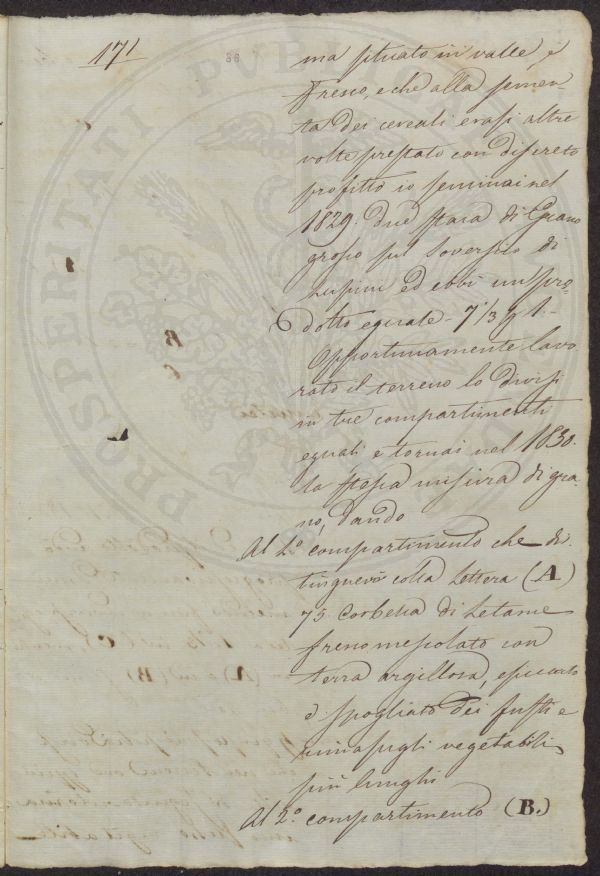 171
36
ma situato in valle e
fresco, e che alla semen-
ta dei cereali erasi altre
volte prestato con discreto
profitto io seminai nel
1829. due staia di Grano
grosso sul Soverscio di
Lupini ed ebbi un pro-
dotto eguale - 7 1/3 p 1.-
Opportunamente lavo
rato il terreno lo divisi
in tre compartimenti
eguali e tornai nel 1830.
la stessa misura di gra-
no, dando
Al 1.º compartimento che di-
tinguerò colla Lettera (A)
75 Corbella di Letame
fresco mescolato con
terra argillosa, e
e spogliato dei fusti e
rimasugli vegetabili
più lunghi
Al 2.º compartimento (B.)
PROSPERITATI PUBLICAE